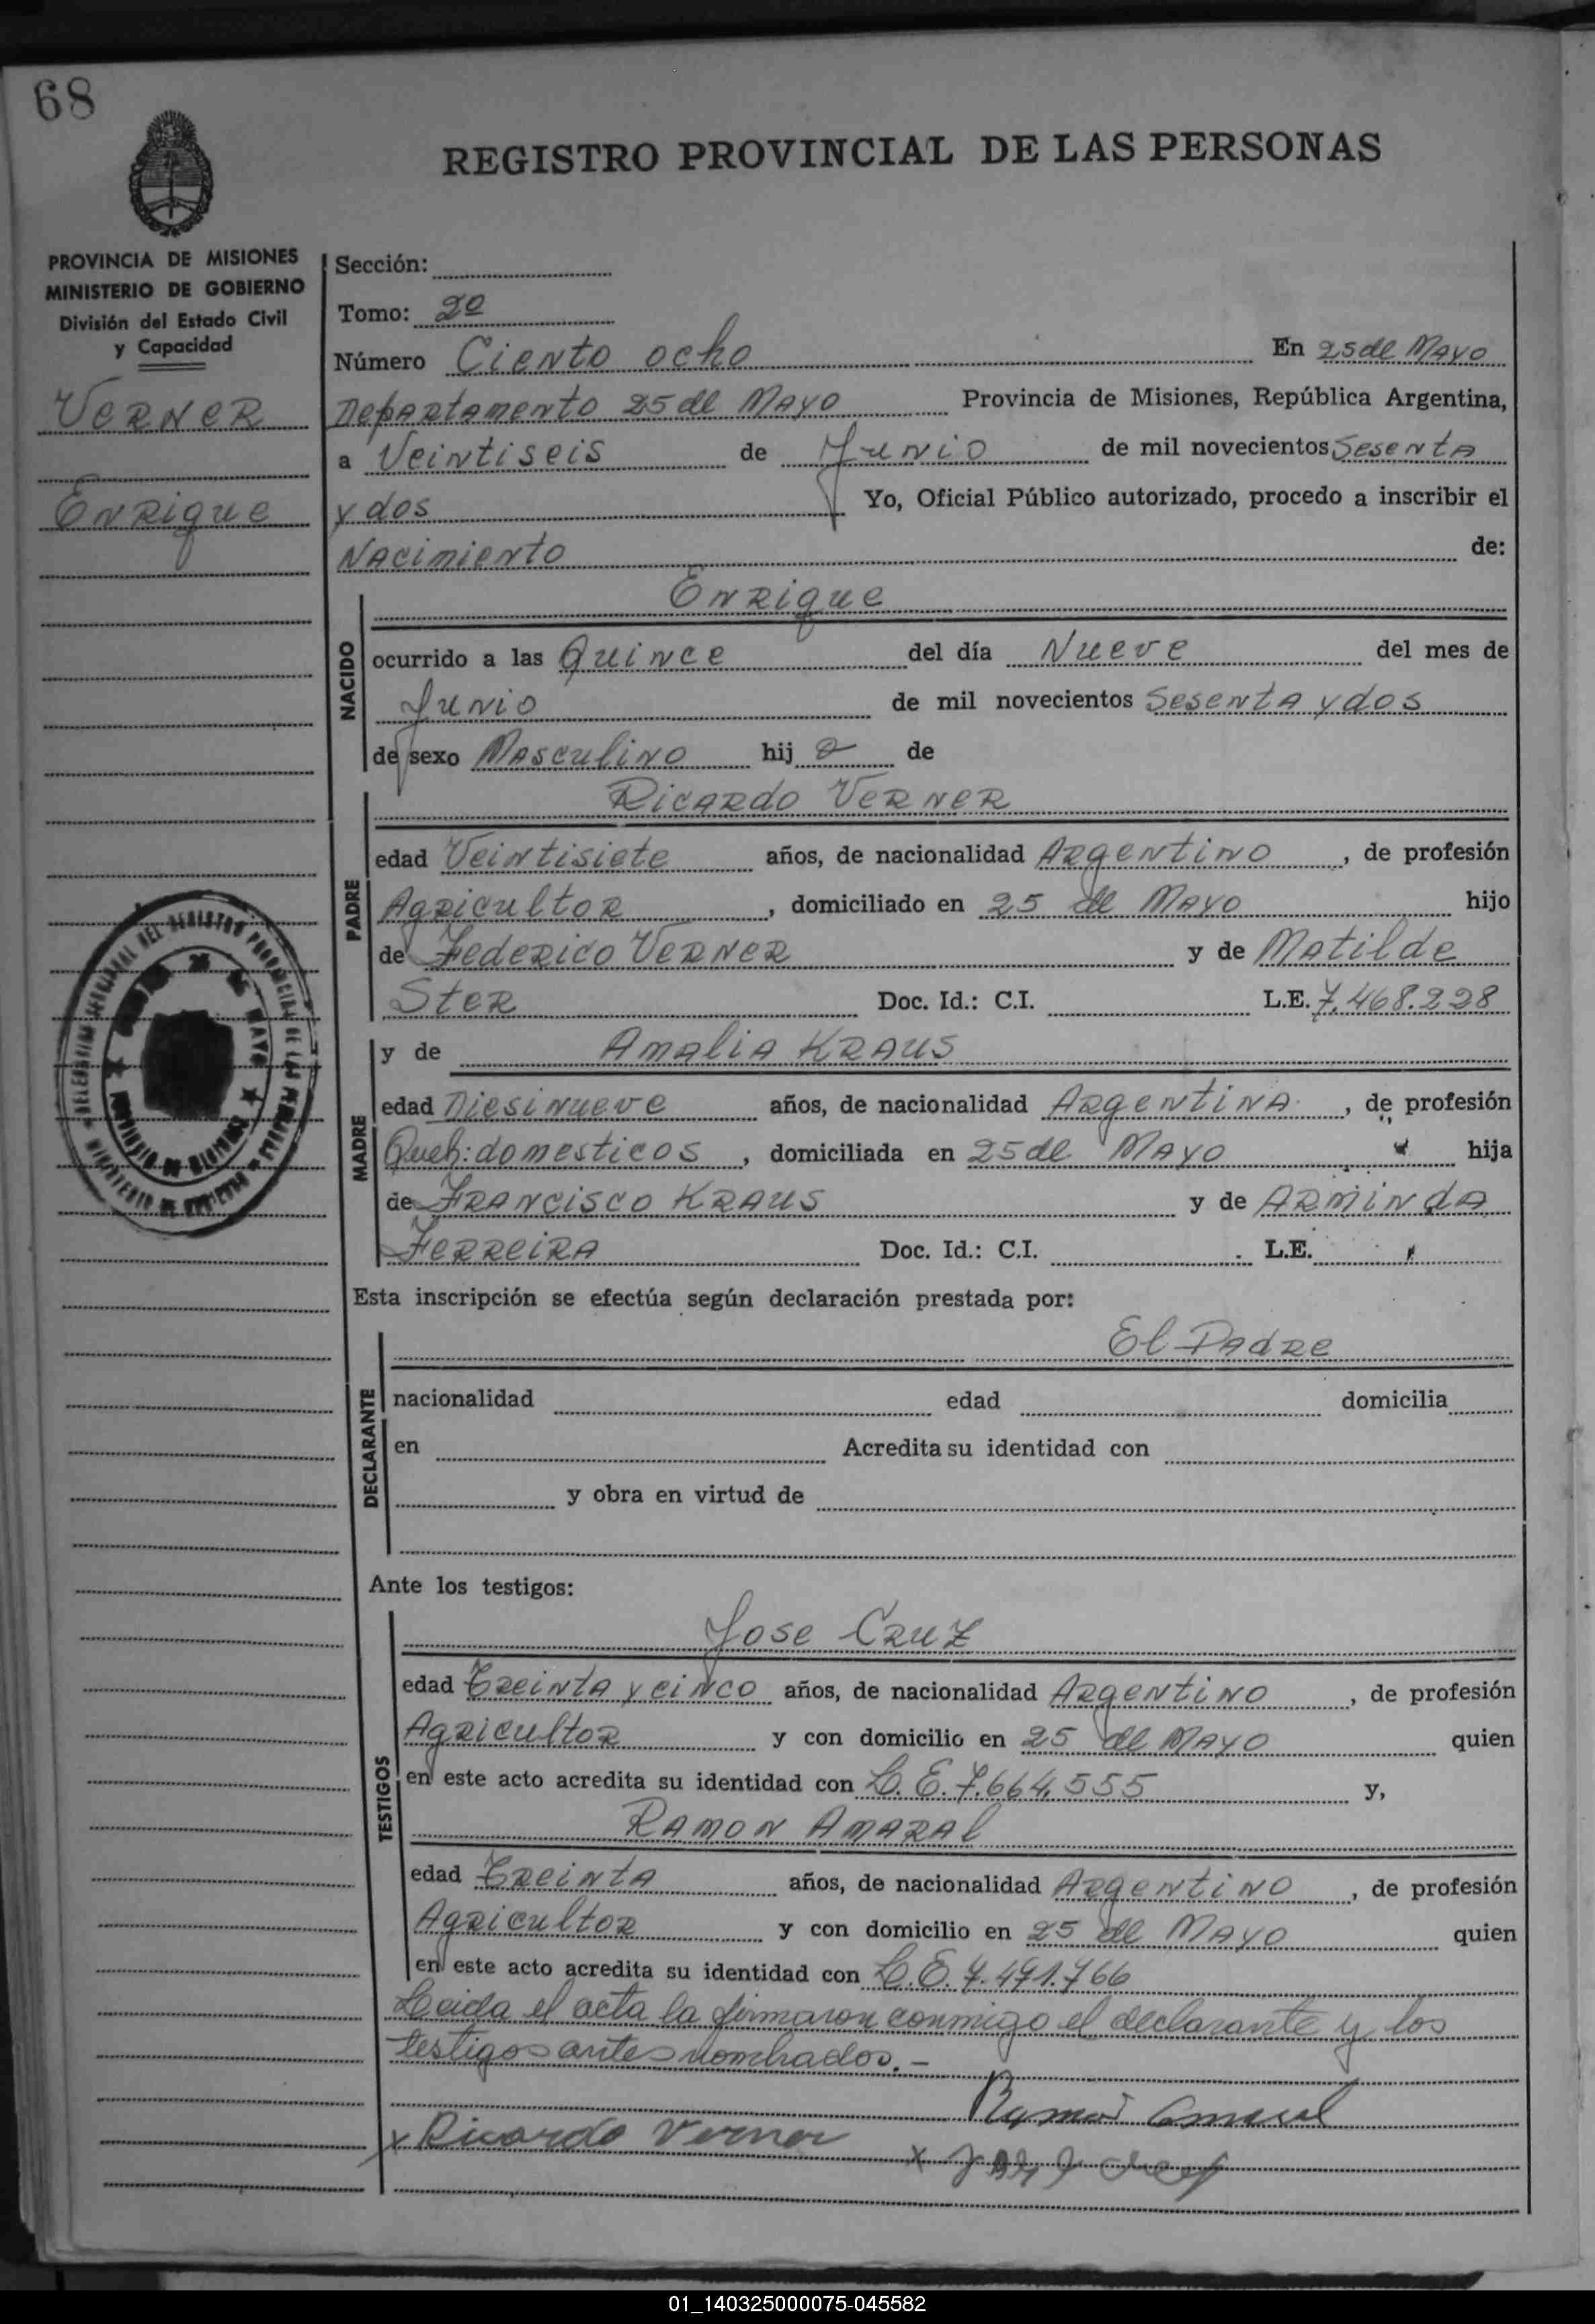 68
REGISTRO PROVINCIAL DE LAS PERSONAS
PROVINCIA DE MISIONES
MINISTERIO DE GOBIERNO
División del Estado Civil
y Capacidad
VERNER
Enrique
Sección:
Tomo: 2º
Número Ciento ocho En 25 de Mayo
Departamento 25 de Mayo Provincia de Misiones, República Argentina,
a Veintiseis de Junio de mil novecientos Sesenta
y dos Yo, Oficial Público autorizado, procedo a inscribir el
Nacimiento de:
NACIDO
Enrique
ocurrido a las Quince del día Nueve del mes de
Junio de mil novecientos Sesenta y dos
de sexo Masculino hij o de
PADRE
Ricardo Verner
edad Veintisiete años, de nacionalidad Argentino, de profesión
Agricultor, domiciliado en 25 de Mayo hijo
de Federico Verner y de Matilde
Ster Doc. Id.: C.I. L.E. 7.468.228
MADRE
y de Amalia Kraus
edad Diesinueve años, de nacionalidad Argentina, de profesión
Queh: domesticos, domiciliada en 25 de Mayo hija
de Francisco Kraus y de Arminda
Ferreira Doc. Id.: C.I. L.E.
Esta inscripción se efectúa según declaración prestada por:
DECLARANTE
El Padre
nacionalidad edad domicilia
en Acredita su identidad con
y obra en virtud de
Ante los testigos:
TESTIGOS
Jose Cruz
edad Treinta y cinco años, de nacionalidad Argentino, de profesión
Agricultor y con domicilio en 25 de Mayo quien
en este acto acredita su identidad con L.E. 7.664.555 y,
Ramon Amaral
edad Treinta años, de nacionalidad Argentino, de profesión
Agricultor y con domicilio en 25 de Mayo quien
en este acto acredita su identidad con L.E. 7.491.766
Leida el acta la firmaron conmigo el declarante y los
testigos antes nombrados.-
Ramon Amaral
x Ricardo Verner
01_140325000075-045582